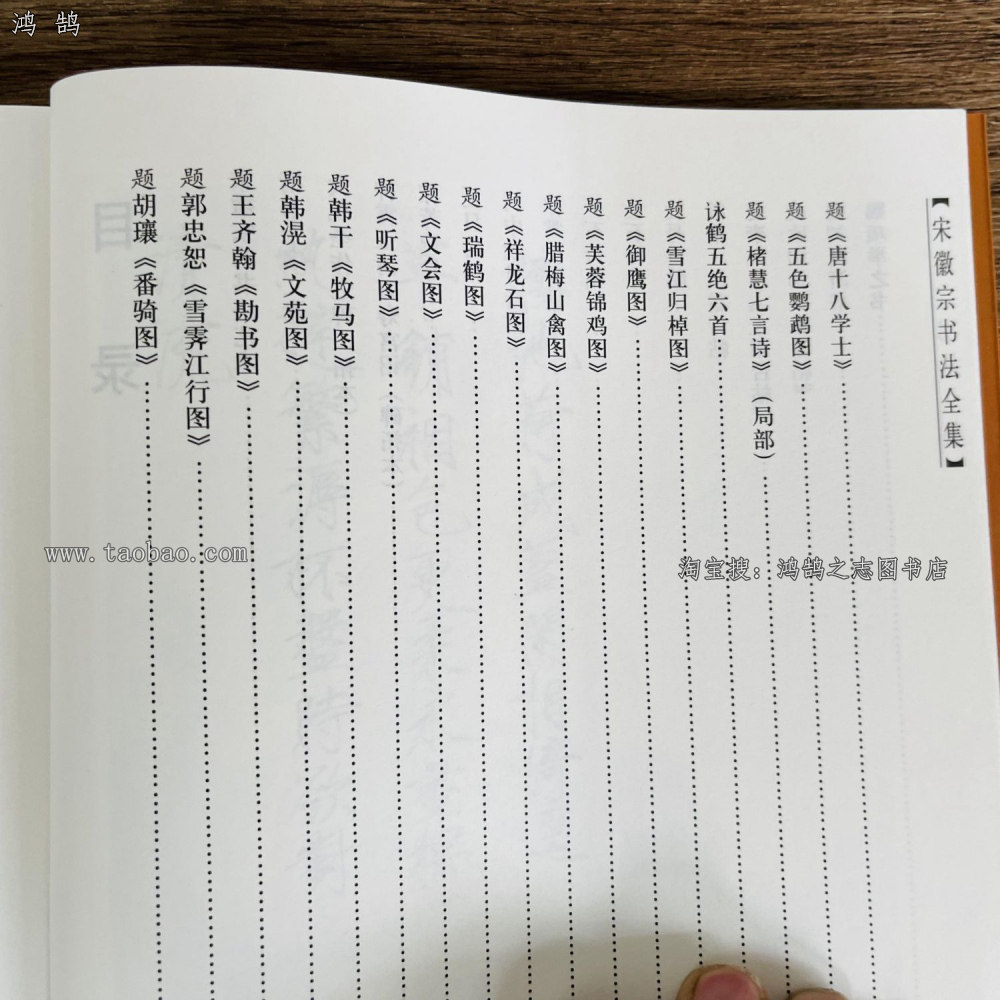 鸿 鹄
【宋徽宗书法全集】
题《唐十八学士》
题《五色鹦鹉图》
题《楮慧七言诗》（局部）
咏鹤五绝六首
题《雪江归棹图》
题《御鹰图》
题《芙蓉锦鸡图》
题《腊梅山禽图》
题《祥龙石图》
题《瑞鹤图》
题《文会图》
题《听琴图》
题韩干《牧马图》
题韩滉《文苑图》
题王齐翰《勘书图》
题郭忠恕《雪霁江行图》
题胡瓌《番骑图》
www.taobao.com
淘宝搜：鸿鹄之志图书店
目录